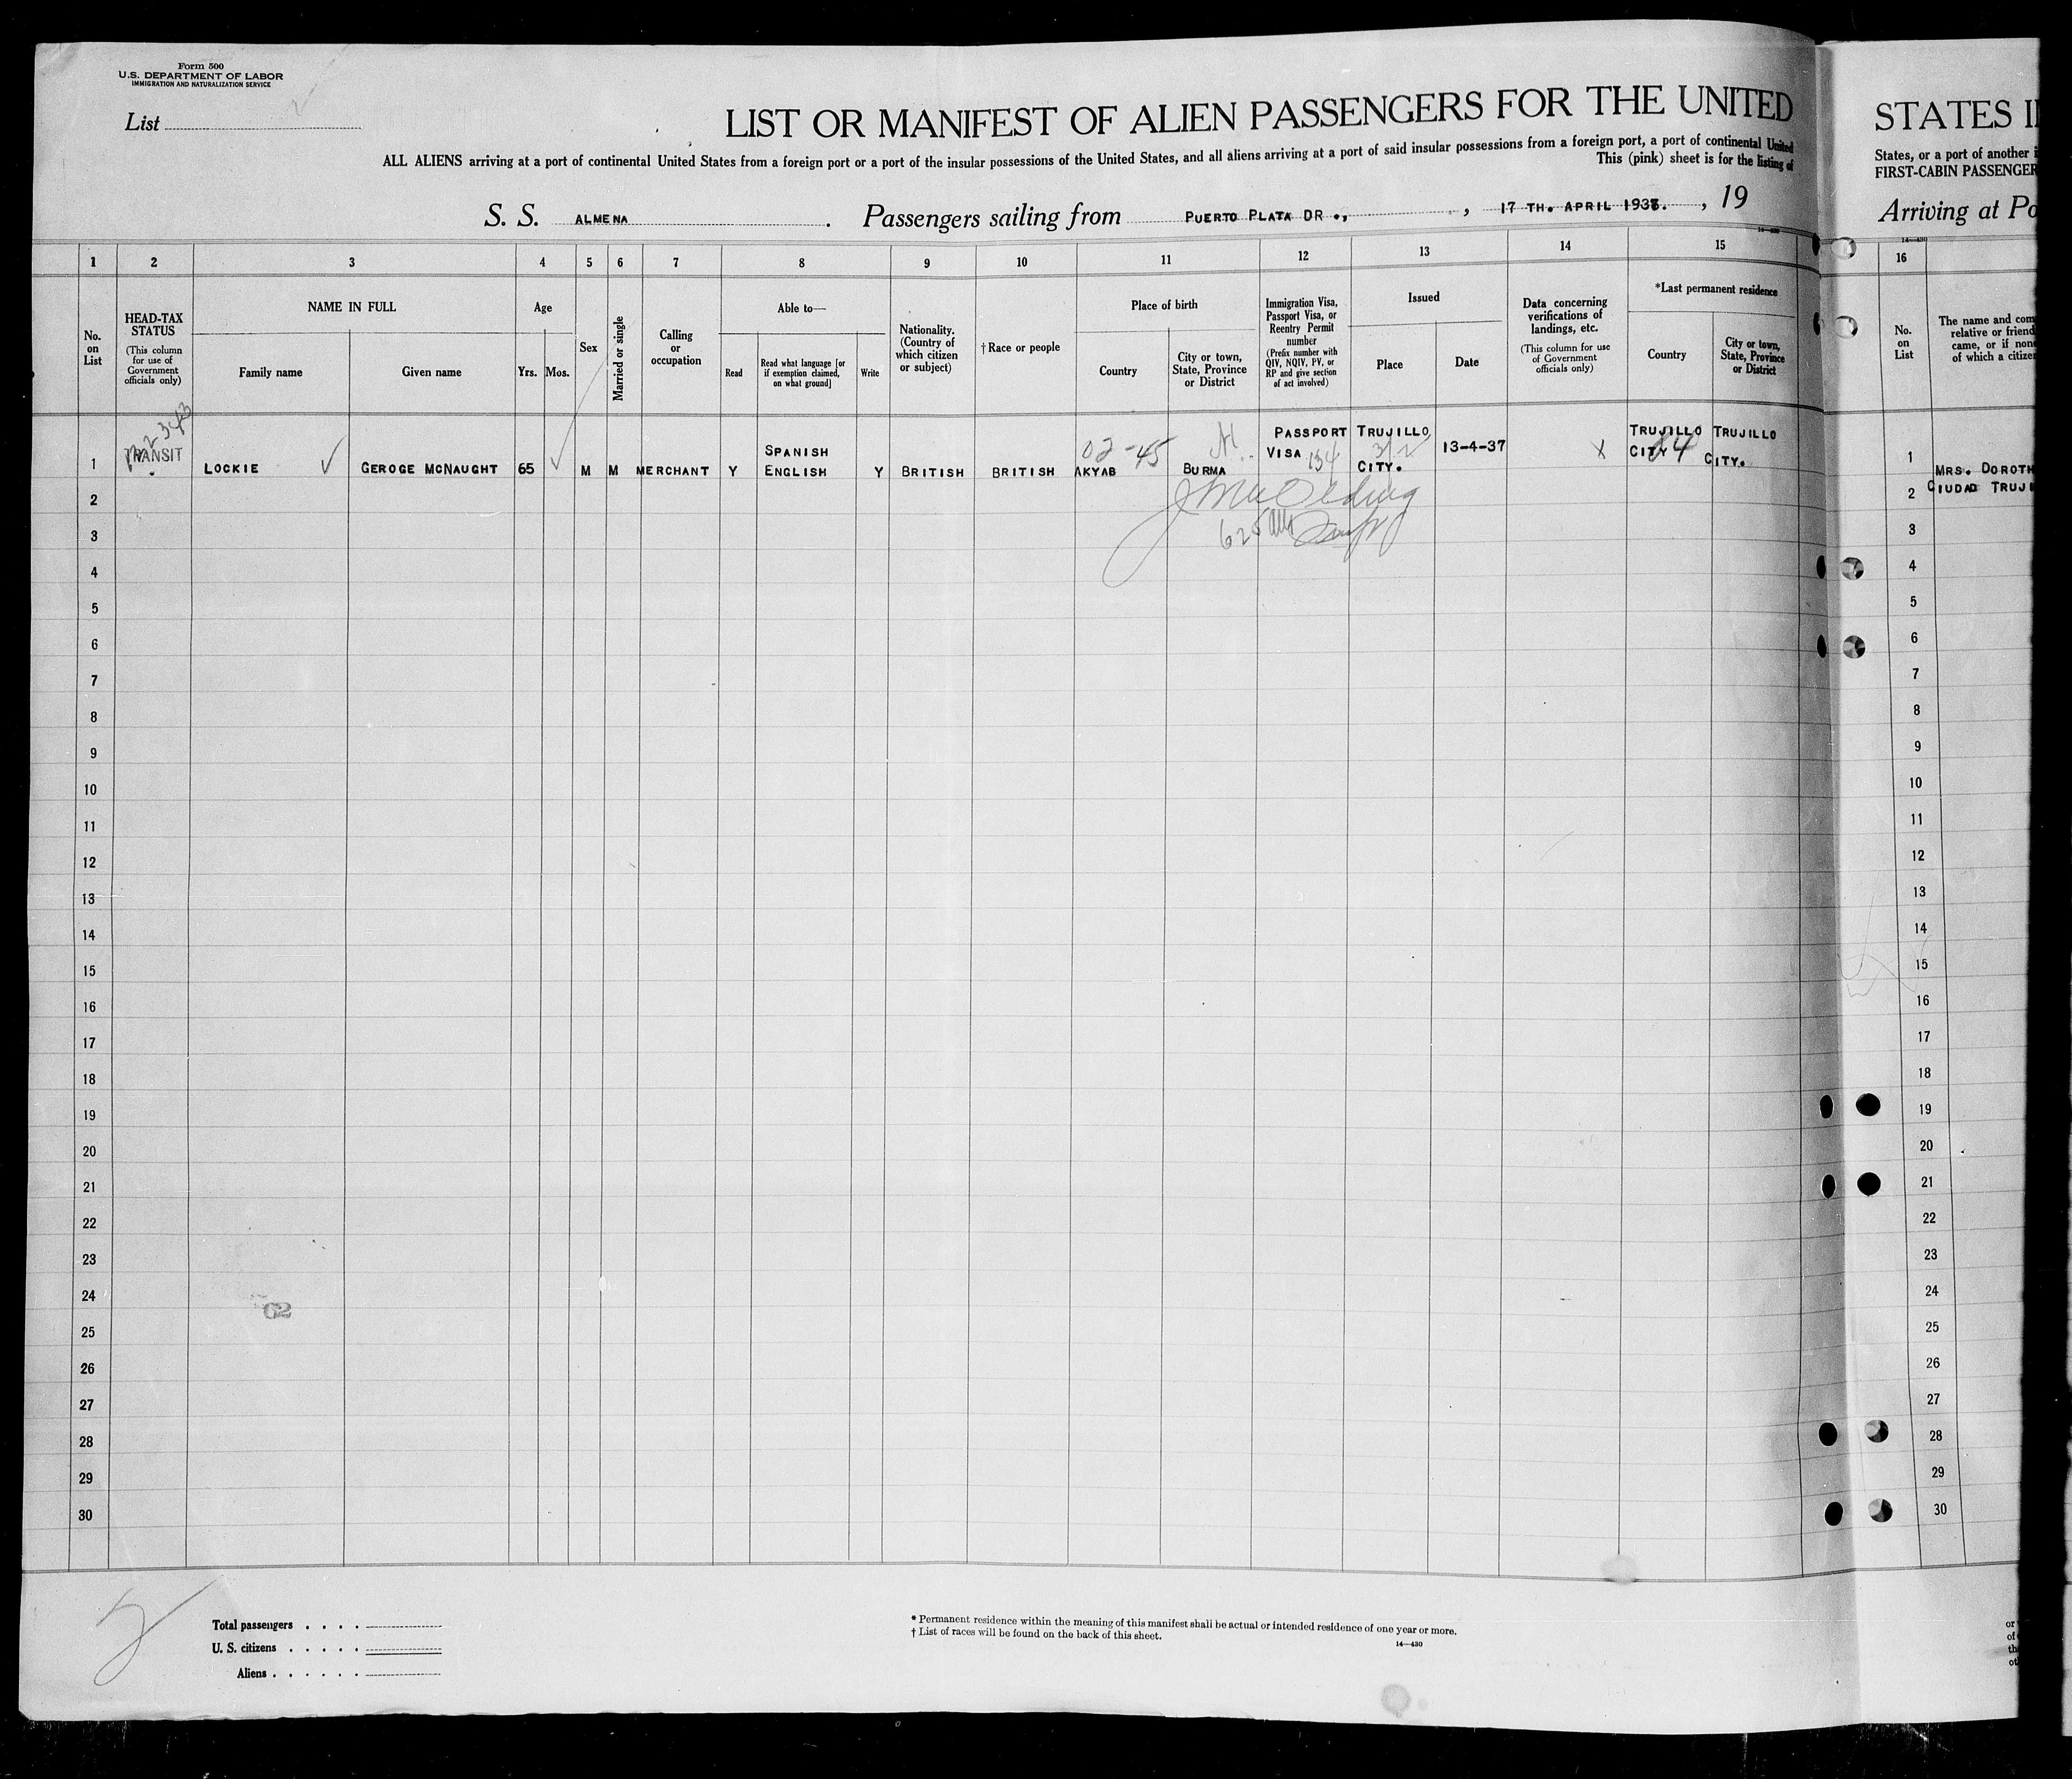 Form 500
U.S. DEPARTMENT OF LABOR
IMMIGRATION AND NATURALIZATION SERVICE
List
LIST OR MANIFEST OF ALIEN PASSENGERS FOR THE UNITED
ALL ALIENS arriving at a port of continental United States from a foreign port or a port of the insular possessions of the United States, and all aliens arriving at a port of said insular possessions from a foreign port, a port of continental United
This (pink) sheet is for the listing of
S. S. ALMENA. Passengers sailing from PUERTO PLATA DR ., , 17 TH. APRIL 1937. , 19
1 2 3 4 5 6 7 8 9 10 11 12 13 14 15
No. on List
HEAD-TAX STATUS
(This column for use of Government officials only)
NAME IN FULL
Family name
Given name
Age
Yrs.
Mos.
Sex
Married or single
Calling or occupation
Able to—
Read
Read what language [or if exemption claimed, on what ground]
Write
Nationality. (Country of which citizen or subject)
† Race or people
Place of birth
Country
City or town, State, Province or District
Immigration Visa, Passport Visa, or Reentry Permit number
(Prefix number with QIV, NQIV, PV, or RP and give section of act involved)
Issued
Place
Date
Data concerning verifications of landings, etc.
(This column for use of Government officials only)
*Last permanent residence
Country
City or town, State, Province or District
14—430
1 TRANSIT LOCKIE GEROGE MCNAUGHT 65 M M MERCHANT Y SPANISH ENGLISH Y BRITISH BRITISH AKYAB BURMA PASSPORT VISA 134 TRUJILLO CITY. 13-4-37 X TRUJILLO CITY TRUJILLO CITY.
02-45
312
84
625
2
3
4
5
6
7
8
9
10
11
12
13
14
15
16
17
18
19
20
21
22
23
24
25
26
27
28
29
30
62
Total passengers
U. S. citizens
Aliens
* Permanent residence within the meaning of this manifest shall be actual or intended residence of one year or more.
† List of races will be found on the back of this sheet.
14—430
STATES I
States, or a port of another
FIRST-CABIN PASSENGER
Arriving at Po
14—430
16
No. on List
The name and com
relative or friend
came, or if non
of which a citize
1 MRS. DOROTH
2 CIUDAD TRUJI
3
4
5
6
7
8
9
10
11
12
13
14
15
16
17
18
19
20
21
22
23
24
25
26
27
28
29
30